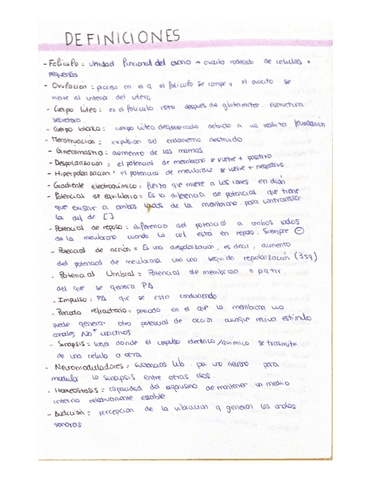 DEFINICIONES
- Folículo = Unidad funcional del ovario → ovocito rodeado de células +
pequeñas
- Ovulación = proceso en el q el folículo se rompe y el ovocito se
mueve al interior del útero.
- Cuerpo lúteo = es el folículo roto después de estructura
secretora
- Cuerpo blanco = cuerpo lúteo degenerado debido a no fecundación
- Menstruación = expulsión del endometrio destruido.
- Ginecomastia = aumento de las mamas
- Despolarización = el potencial de membrana se vuelve + positivo
- Hiperpolarización = el potencial de membrana se vuelve + negativo.
- Gradiente electroquímico = que mueve a los iones en
- Potencial de equilibrio = Es la diferencia de potencial que tiene
que existir a ambos lados de la membrana para contrarrestar
la dif de [ ]
- Potencial de reposo = diferencia del potencial a ambos lados
de la membrana cuando la cel está en reposo. Siempre ⊖
- Potencial de acción = Es una despolarización, es decir, aumento
del potencial de membrana seguido repolarización
- Potencial Umbral = Potencial de membrana a partir
del que se genera PA
- Impulso = PA que se está conduciendo
- Periodo refractario = periodo en el que la membrana no
puede generar otro potencial de acción aunque reciva estímulo
canales Na⁺ inactivos
- Sinapsis = lugar donde el impulso eléctrico/químico se transmite
de una célula a otra
- Neuromoduladores = sustancias lib. por una neurona para
modular la sinapsis entre otras dos.
- Homeostasis = capacidad del organismo de mantener un medio
interno relativamente estable
- Audición = percepción de la vibración q generan las ondas
sonoras